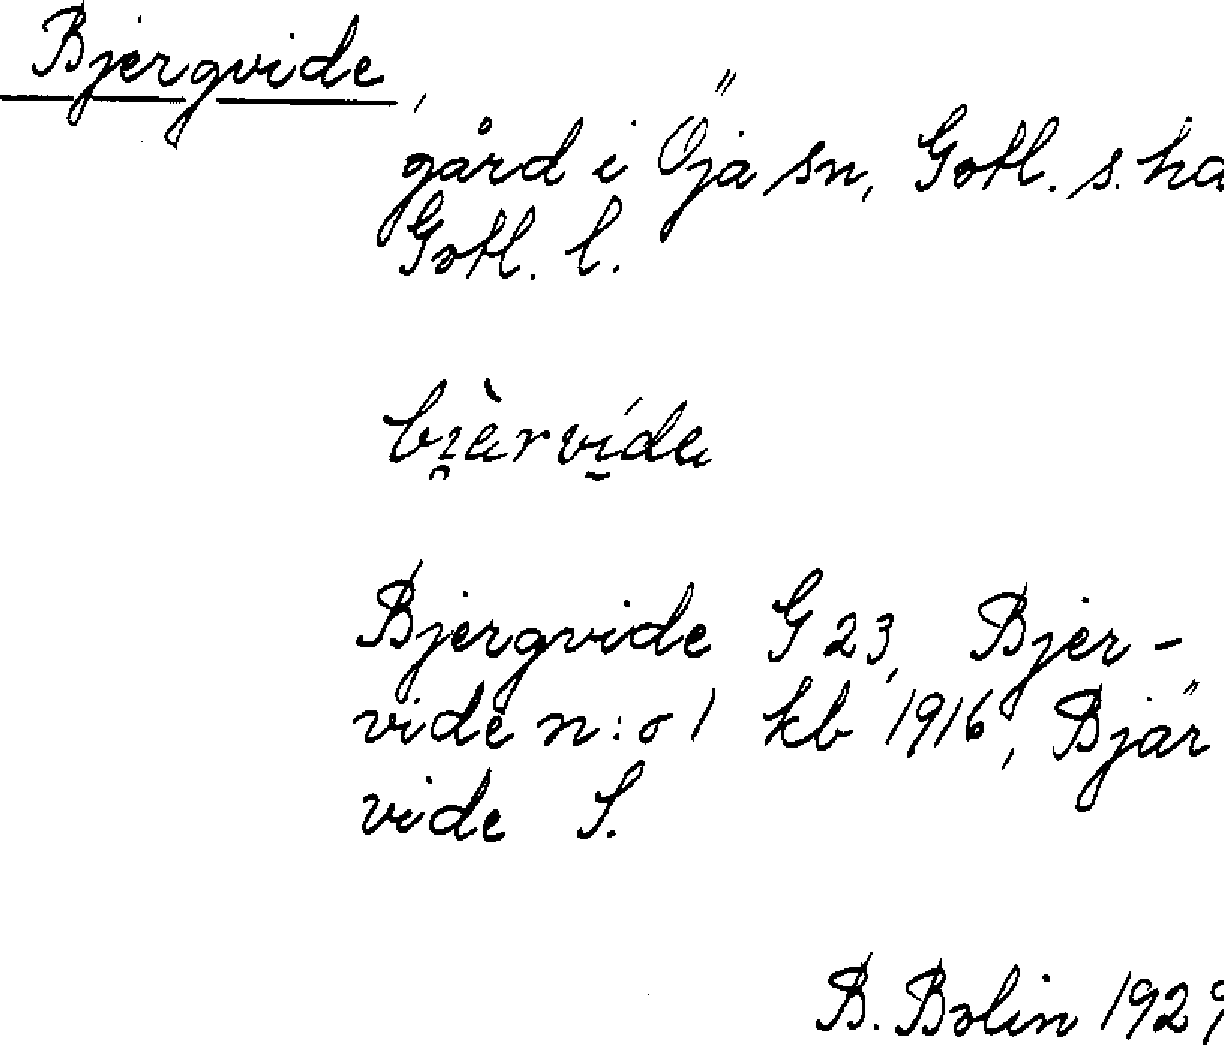 Bjergvide,
gård i Öja sn, Gotl. s. hd
Gotl. l.
Bjergvide G 23, Bjer-
vide n:o 1 kb 1916, Bjär
vide S.
B. Bolin 1929